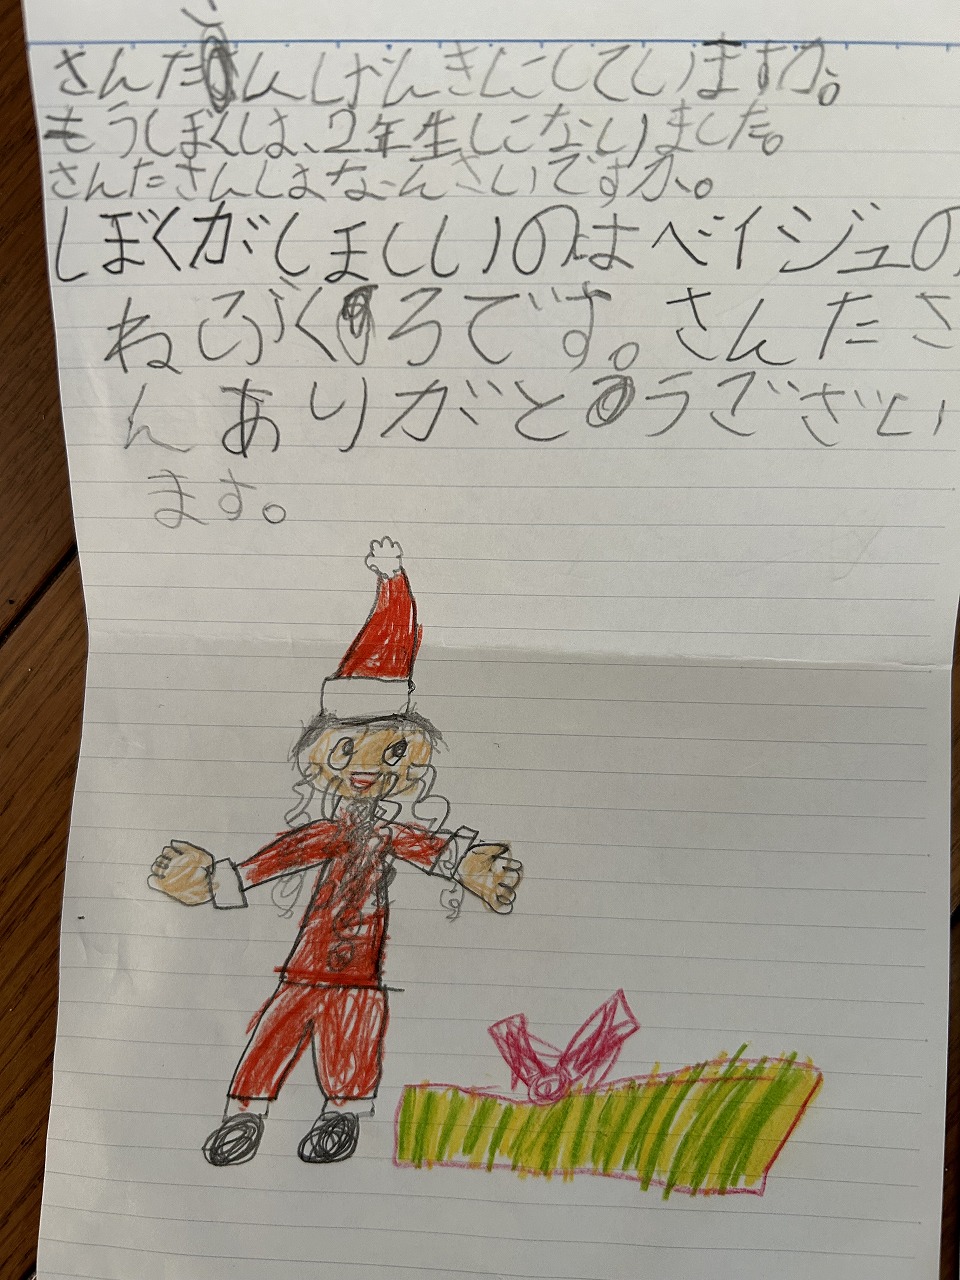 さんたさんげんきにしていますか。
もうぼくは、2年生になりました。
さんたさんはなんさいですか。
ぼくがほしいのはベイジュの
ねぶくろです。さんたさ
んありがとうござい
ます。